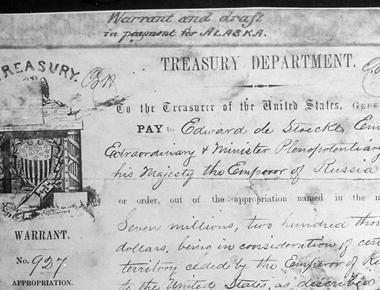 Warrant and draft
in payment for ALASKA.
TREASURY.
TREASURY DEPARTMENT.
To the Treasurer of the United States.
PAY to Edward de Stoeckl,
Extraordinary & Minister Plenopotentiary
his Majesty the Emperor of Russia
or order, out of the appropriation named in the
Seven millions, two hundred
dollars, being in consideration of
territory ceded by the Emperor of
to the United States, as described
WARRANT.
No. 927
APPROPRIATION.